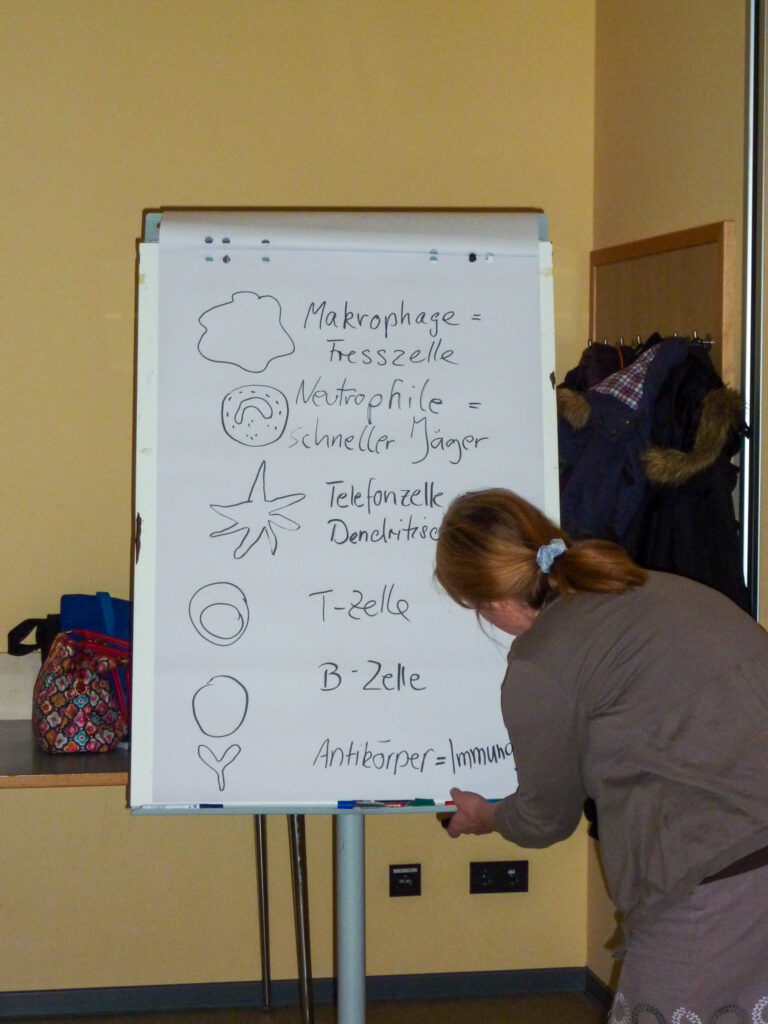 Makrophage =
Fresszelle
Neutrophile =
schneller Jäger
Telefonzelle
T-Zelle
B-Zelle
Antikörper =